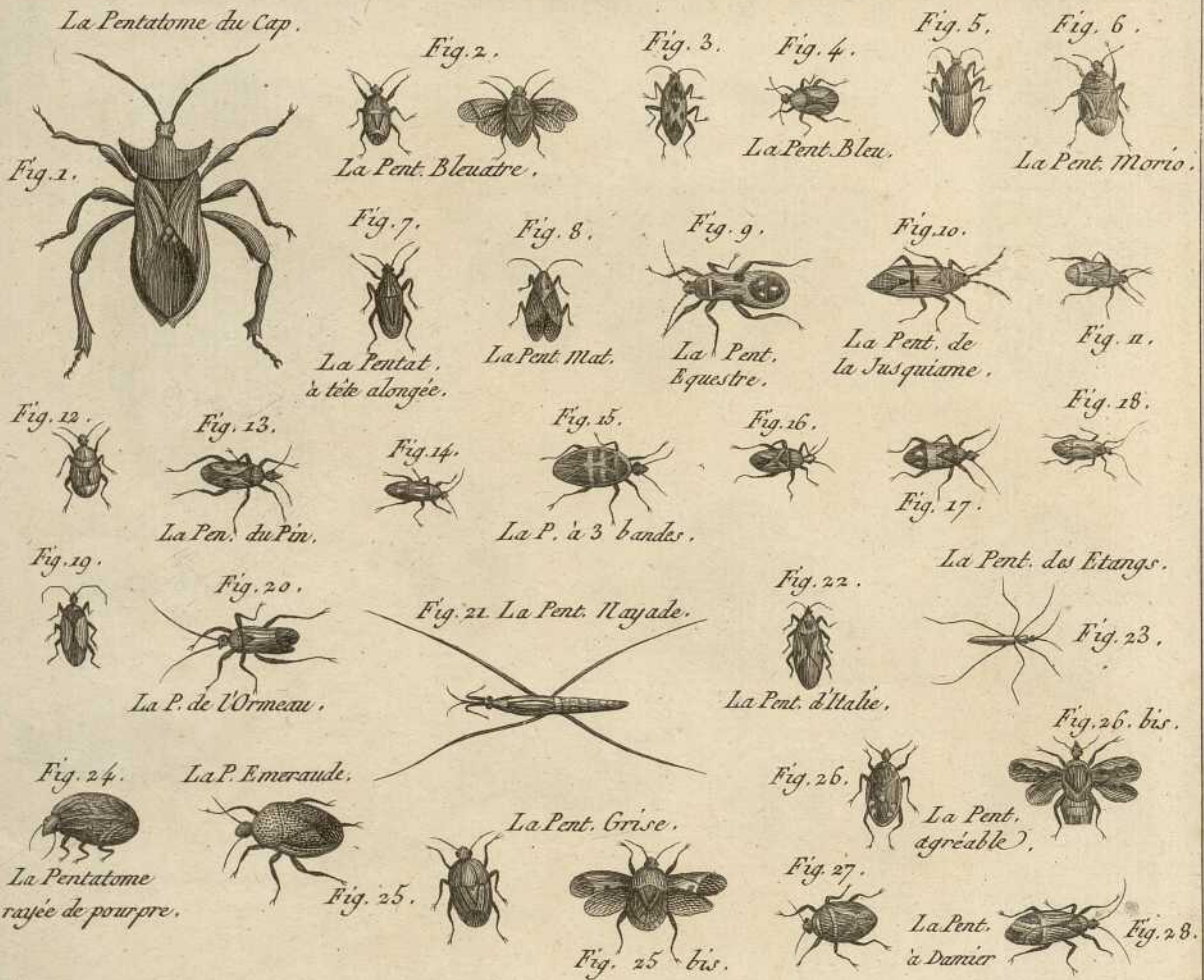 La Pentatome du Cap.
Fig. 1.
Fig. 2.
La Pent. Bleuatre.
Fig. 3.
Fig. 4.
La Pent. Bleu.
Fig. 5.
Fig. 6.
La Pent. Morio.
Fig. 7.
La Pentat.
à tête alongée.
Fig. 8.
La Pent. Mat.
Fig. 9.
La Pent.
Equestre.
Fig. 10.
La Pent. de
la Jusquiame.
Fig. 11.
Fig. 12.
Fig. 13.
La Pen. du Pin.
Fig. 14.
Fig. 15.
La P. à 3 bandes.
Fig. 16.
Fig. 17.
Fig. 18.
Fig. 19.
Fig. 20.
La P. de l'Ormeau.
Fig. 21. La Pent. Nayade.
Fig. 22.
La Pent. d'Italie.
La Pent. des Etangs.
Fig. 23.
Fig. 24.
La Pentatome
rayée de pourpre.
La P. Emeraude.
Fig. 25.
La Pent. Grise.
Fig. 25 bis.
Fig. 26.
Fig. 26. bis.
La Pent.
agréable.
Fig. 27.
La Pent.
à Damier
Fig. 28.